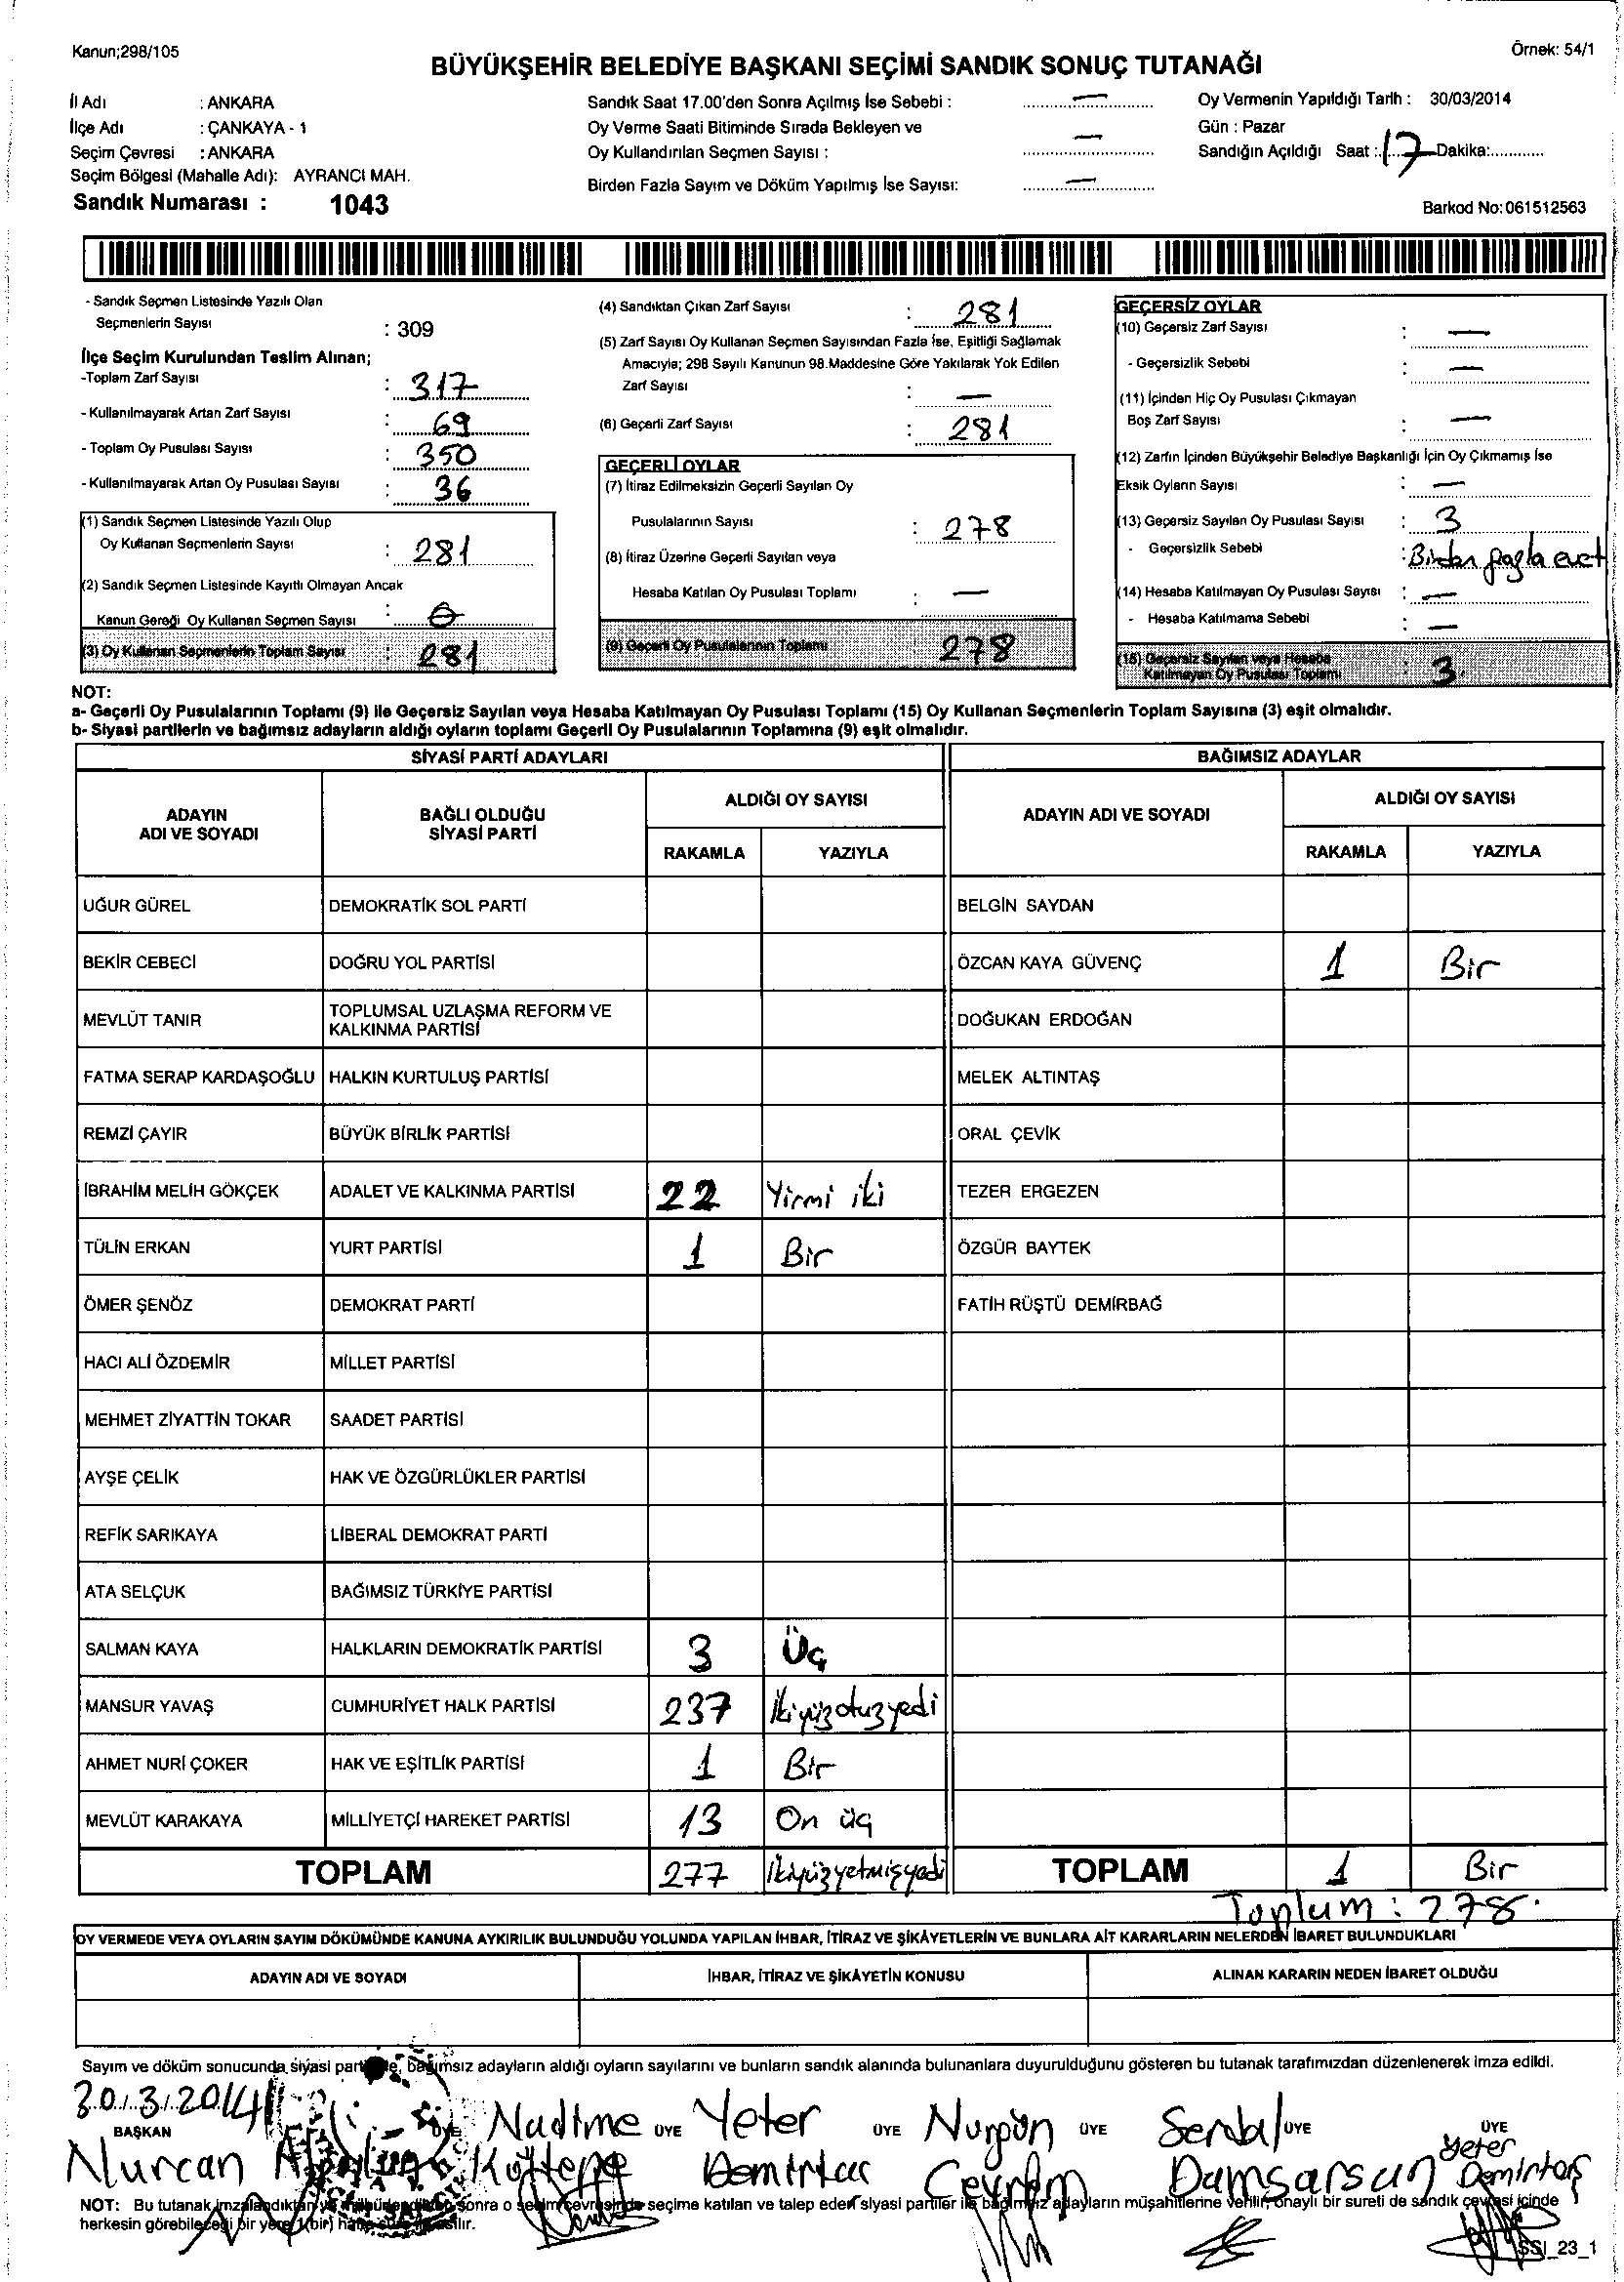 Kanun;298/105
Örnek: 54/1
BÜYÜKŞEHİR BELEDİYE BAŞKANI SEÇİMİ SANDIK SONUÇ TUTANAĞI
İl Adı : ANKARA
İlçe Adı : ÇANKAYA - 1
Seçim Çevresi : ANKARA
Seçim Bölgesi (Mahalle Adı): AYRANCI MAH.
Sandık Numarası : 1043
Sandık Saat 17.00'den Sonra Açılmış İse Sebebi : —
Oy Verme Saati Bitiminde Sırada Bekleyen ve
Oy Kullandırılan Seçmen Sayısı : —
Birden Fazla Sayım ve Döküm Yapılmış İse Sayısı: —
Oy Vermenin Yapıldığı Tarih : 30/03/2014
Gün : Pazar
Sandığın Açıldığı Saat : 17 Dakika:............
Barkod No:061512563
- Sandık Seçmen Listesinde Yazılı Olan
Seçmenlerin Sayısı : 309
İlçe Seçim Kurulundan Teslim Alınan;
-Toplam Zarf Sayısı : 317
- Kullanılmayarak Artan Zarf Sayısı : 69
- Toplam Oy Pusulası Sayısı : 350
- Kullanılmayarak Artan Oy Pusulası Sayısı : 36
(1) Sandık Seçmen Listesinde Yazılı Olup
Oy Kullanan Seçmenlerin Sayısı : 281
(2) Sandık Seçmen Listesinde Kayıtlı Olmayan Ancak
Kanun Gereği Oy Kullanan Seçmen Sayısı : 0
(3) Oy Kullanan Seçmenlerin Toplam Sayısı : 281
(4) Sandıktan Çıkan Zarf Sayısı : 281
(5) Zarf Sayısı Oy Kullanan Seçmen Sayısından Fazla İse, Eşitliği Sağlamak
Amacıyla; 298 Sayılı Kanunun 98.Maddesine Göre Yakılarak Yok Edilen
Zarf Sayısı : —
(6) Geçerli Zarf Sayısı : 281
GEÇERLİ OYLAR
(7) İtiraz Edilmeksizin Geçerli Sayılan Oy
Pusulalarının Sayısı : 278
(8) İtiraz Üzerine Geçerli Sayılan veya
Hesaba Katılan Oy Pusulası Toplamı : —
(9) Geçerli Oy Pusulalarının Toplamı 278
GEÇERSİZ OYLAR
(10) Geçersiz Zarf Sayısı : —
- Geçersizlik Sebebi : —
(11) İçinden Hiç Oy Pusulası Çıkmayan
Boş Zarf Sayısı : —
(12) Zarfın İçinden Büyükşehir Belediye Başkanlığı İçin Oy Çıkmamış İse
Eksik Oyların Sayısı : —
(13) Geçersiz Sayılan Oy Pusulası Sayısı : 3
- Geçersizlik Sebebi : Birden fazla evet
(14) Hesaba Katılmayan Oy Pusulası Sayısı : —
- Hesaba Katılmama Sebebi : —
(15) Geçersiz Sayılan veya Hesaba
Katılmayan Oy Pusulası Toplamı : 3
NOT:
a- Geçerli Oy Pusulalarının Toplamı (9) ile Geçersiz Sayılan veya Hesaba Katılmayan Oy Pusulası Toplamı (15) Oy Kullanan Seçmenlerin Toplam Sayısına (3) eşit olmalıdır.
b- Siyasi partilerin ve bağımsız adayların aldığı oyların toplamı Geçerli Oy Pusulalarının Toplamına (9) eşit olmalıdır.
SİYASİ PARTİ ADAYLARI
BAĞIMSIZ ADAYLAR
ADAYIN ADI VE SOYADI
BAĞLI OLDUĞU SİYASİ PARTİ
ALDIĞI OY SAYISI
RAKAMLA YAZIYLA
ADAYIN ADI VE SOYADI
ALDIĞI OY SAYISI
RAKAMLA YAZIYLA
UĞUR GÜREL DEMOKRATİK SOL PARTİ BELGİN SAYDAN
BEKİR CEBECİ DOĞRU YOL PARTİSİ ÖZCAN KAYA GÜVENÇ 1 Bir
MEVLÜT TANIR TOPLUMSAL UZLAŞMA REFORM VE KALKINMA PARTİSİ DOĞUKAN ERDOĞAN
FATMA SERAP KARDAŞOĞLU HALKIN KURTULUŞ PARTİSİ MELEK ALTINTAŞ
REMZİ ÇAYIR BÜYÜK BİRLİK PARTİSİ ORAL ÇEVİK
İBRAHİM MELİH GÖKÇEK ADALET VE KALKINMA PARTİSİ 22 Yirmi iki TEZER ERGEZEN
TÜLİN ERKAN YURT PARTİSİ 1 Bir ÖZGÜR BAYTEK
ÖMER ŞENÖZ DEMOKRAT PARTİ FATİH RÜŞTÜ DEMİRBAĞ
HACI ALİ ÖZDEMİR MİLLET PARTİSİ
MEHMET ZİYATTİN TOKAR SAADET PARTİSİ
AYŞE ÇELİK HAK VE ÖZGÜRLÜKLER PARTİSİ
REFİK SARIKAYA LİBERAL DEMOKRAT PARTİ
ATA SELÇUK BAĞIMSIZ TÜRKİYE PARTİSİ
SALMAN KAYA HALKLARIN DEMOKRATİK PARTİSİ 3 Üç
MANSUR YAVAŞ CUMHURİYET HALK PARTİSİ 237 İkiyüzotuzyedi
AHMET NURİ ÇOKER HAK VE EŞİTLİK PARTİSİ 1 Bir
MEVLÜT KARAKAYA MİLLİYETÇİ HAREKET PARTİSİ 13 On üç
TOPLAM 277 İkiyüzyetmişyedi TOPLAM 1 Bir
Toplum : 278.
OY VERMEDE VEYA OYLARIN SAYIM DÖKÜMÜNDE KANUNA AYKIRILIK BULUNDUĞU YOLUNDA YAPILAN İHBAR, İTİRAZ VE ŞİKÂYETLERİN VE BUNLARA AİT KARARLARIN NELERDEN İBARET BULUNDUKLARI
ADAYIN ADI VE SOYADI İHBAR, İTİRAZ VE ŞİKÂYETİN KONUSU ALINAN KARARIN NEDEN İBARET OLDUĞU
Sayım ve döküm sonucunda siyasi partilerle, bağımsız adayların aldığı oyların sayılarını ve bunların sandık alanında bulunanlara duyurulduğunu gösteren bu tutanak tarafımızdan düzenlenerek imza edildi.
30/3/2014
BAŞKAN ÜYE ÜYE ÜYE ÜYE ÜYE
Nurcan
Nadime
Yeter Demirtaş
Nurgün
Serdal
Yeter Demirtaş
NOT: Bu tutanak imzalandıktan ve mühürlendikten sonra o seçim çevresinde seçime katılan ve talep eden siyasi partiler ile bağımsız adayların müşahitlerine verilir, onaylı bir sureti de sandık çevresi içinde
herkesin görebileceği bir yere 1(bir) hafta süre ile asılır.
SSI_23_1